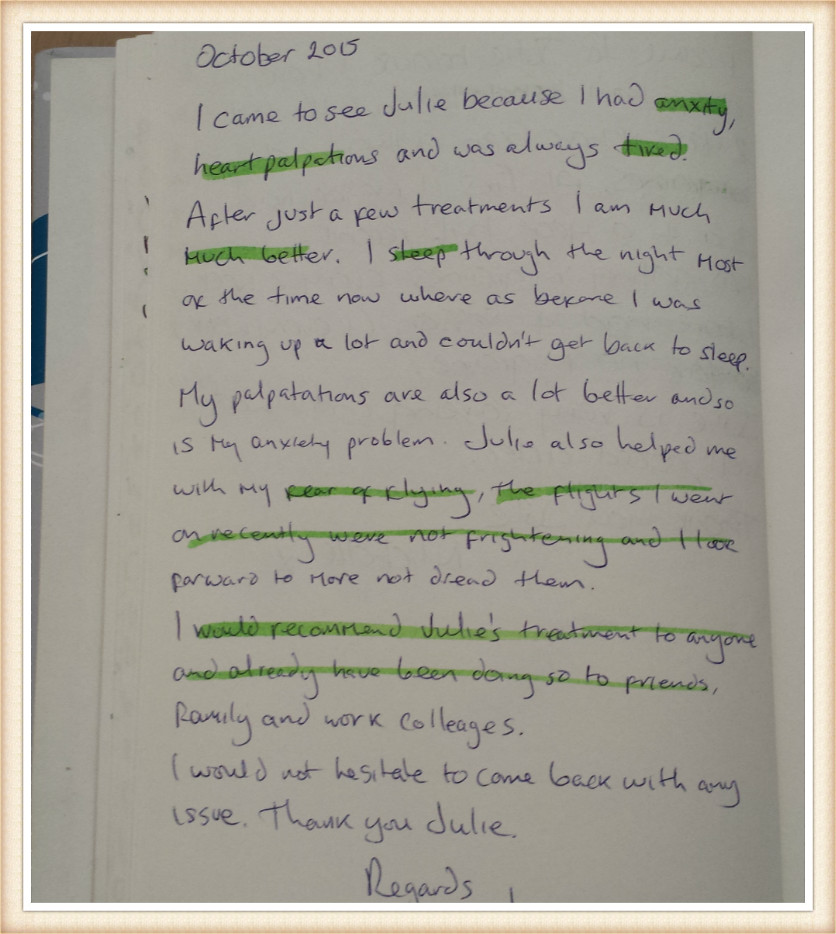 October 2015
I came to see Julie because I had anxity,
heart palpations and was always tired.
After just a few treatments I am much
much better. I sleep through the night most
of the time now where as before I was
waking up a lot and couldn't get back to sleep.
My palpatations are also a lot better and so
is my anxiety problem. Julie also helped me
with my fear of flying, the flights I went
on recently were not frightening and I look
forward to more not dread them.
I would recommend Julie's treatment to anyone
and already have been doing so to friends,
family and work colleages.
I would not hesitate to come back with any
issue. Thank you Julie.
Regards